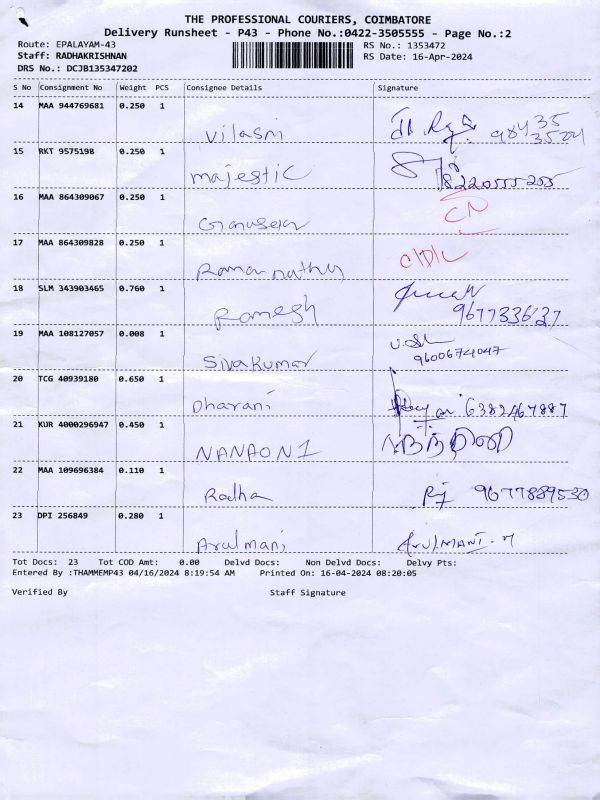 THE PROFESSIONAL COURIERS, COIMBATORE
Delivery Runsheet - P43 - Phone No.:0422-3505555 - Page No.:2
Route: EPALAYAM-43 RS No.: 1353472
Staff: RADHAKRISHNAN RS Date: 16-Apr-2024
DRS No.: DCJB135347202
S No Consignment No Weight PCS Consignee Details Signature
14 MAA 944769681 0.250 1
Vilasni 98435
3504
15 RKT 9575198 0.250 1
majestic 8220555205
16 MAA 864309067 0.250 1
CN
17 MAA 864309828 0.250 1
Ramannathu
18 SLM 343903465 0.760 1
Ramesh 9677333637
19 MAA 108127057 0.008 1
Sivakumar 9600674047
20 TCG 40939180 0.650 1
Dharani 6382467887
21 KUR 4000296947 0.450 1
NANAON1 நந்தினி
22 MAA 109696384 0.110 1
Radha Rj 9677889530
23 DPI 256849 0.280 1
Arulmani ArulMANI - M
Tot Docs: 23 Tot COD Amt: 0.00 Delvd Docs: Non Delvd Docs: Delvy Pts:
Entered By :THAMMEMP43 04/16/2024 8:19:54 AM Printed On: 16-04-2024 08:20:05
Verified By Staff Signature